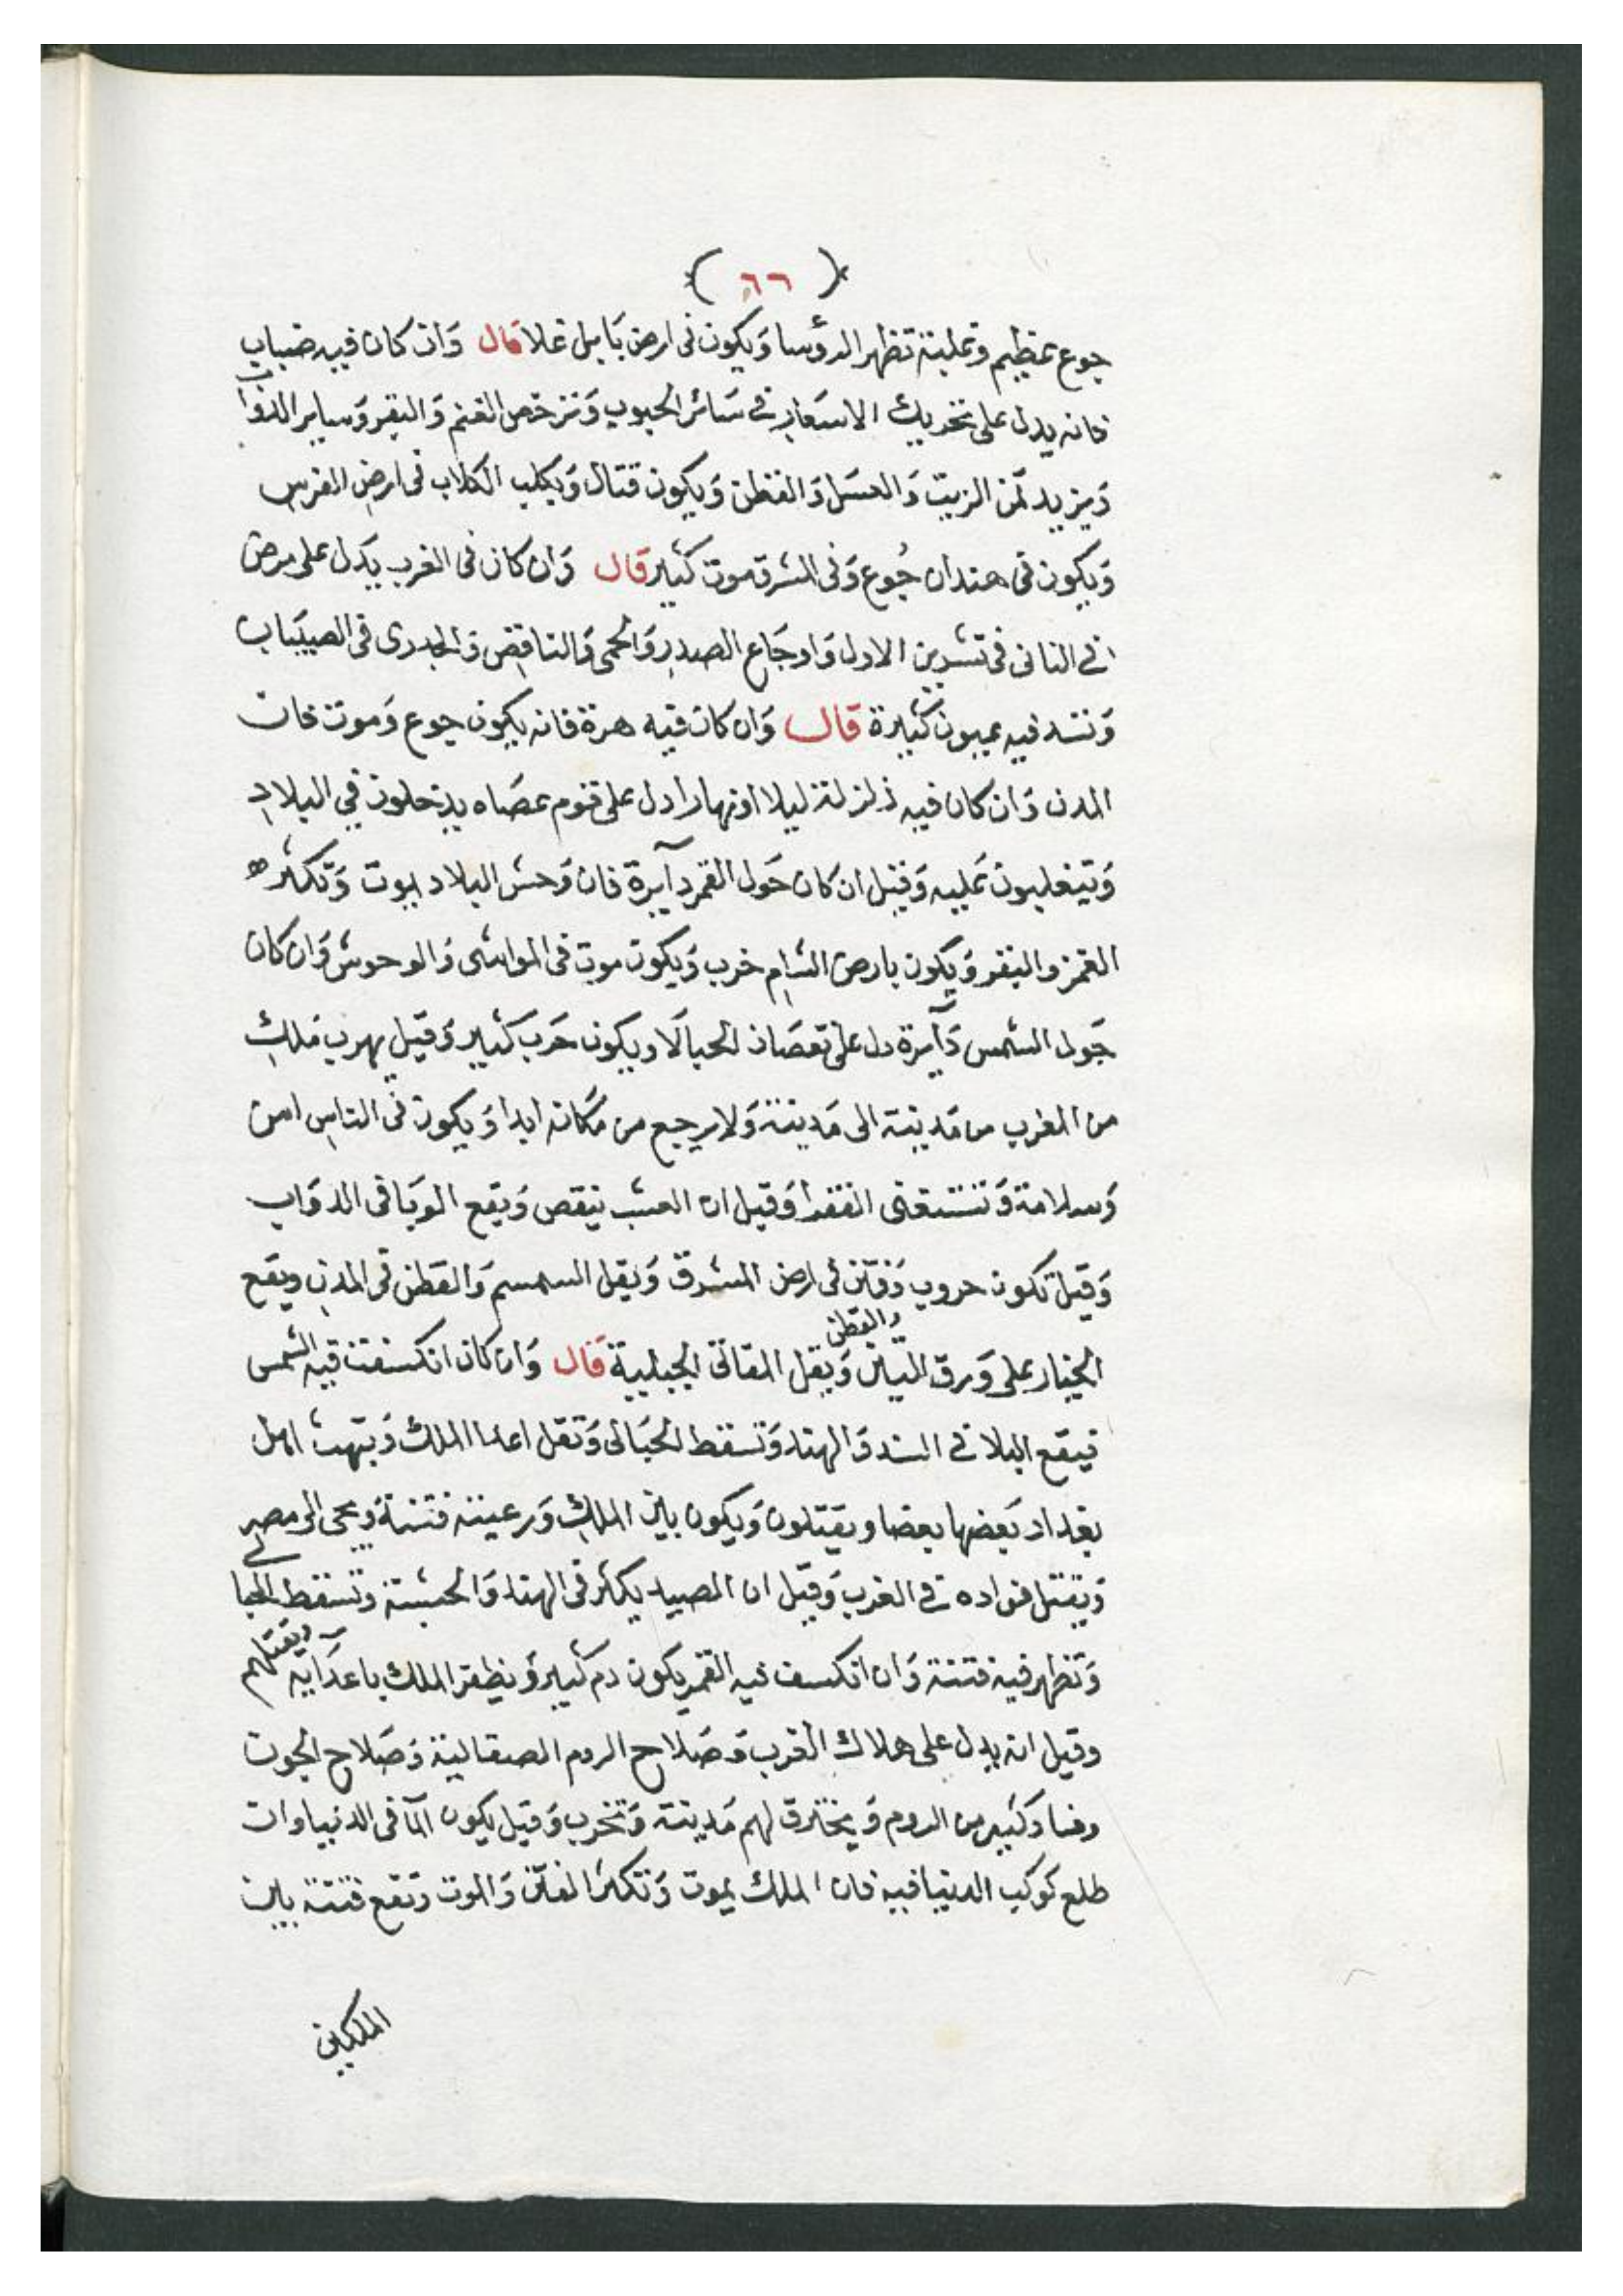 ( ٦٦ )
جوع عظيم وعلبة تظهر الرؤسا وَيكون فى ارض بَابل غلا قال وَان كان فيه ضباب
فانه يدل على تحريك الاسعَار فى سَائر الحبوب وَترخص الغنم وَالبقر وَساير الدواب
وَيزيد ثمن الزيت وَالعسَل وَالقطن وَيكون قتال وَيكلب الكلاب فى ارض الفرس
وَيكون فى هندان جُوع وَفى المشرق موت كثير قال وَان كان فى الغرب يَدل على مرض
فى الثانى فى تشرين الاول وَاوجَاع الصدر وَالحمى وَالنافض وَالجدرى فى الصبيَان
وَتنسد فيه عيون كثيرة قال وَان كان فيه هرة فانه يكون جوع وَموت خان
المدن وَان كان فيه زلزلة ليلا او نهارا دل على قوم عصَاه يدخلون في البلاد
وَيتغلبون عَليه وَقيل ان كان حَول القمر دآيرة فان وَحش البلاد يموت وَتكثر
الغمز والبقر وَيكون بارض الشام خرب وَيكون موت فى المواشى وَالوحوش وَان كان
حَول الشمس دَآيرة دل على نقصَان الحبالَا ويكون حَرب كثير وَقيل يهرب مَلك
من المغرب من مَدينة الى مَدينة وَلا يرجع من مَكانه ابدا وَيكون فى الناس امن
وَسلامة وَتستغنى الفقرا وَقيل ان العشب ينقص وَيقع الوبَا فى الدوَاب
وَقيل تكون حروب وَفتن فى ارض المشرق وَيقل السمسم وَالقطن فى المدن ويقع
الخيار على وَرق التين وَالقطن وَيقل المقاتى الجبلية قال وَان كان انكسفت فيه الشمس
فيقع البلا فى السند وَالهند وَتسقط الحبَالى وَتقل اعدا الملك وَينهب اهل
بغداد بَعضها بعضا ويقتلون وَيكون بين الملك وَرعيته فتنة وَيجى الى مصر
وَيقتل قواده فى الغرب وَقيل ان الصيد يكثر فى الهند وَالحبشة وتسقط الحبالى
وَتظهر فيه فتنة وَان انكسف فيه القمر يكون دم كثير وَيظفر الملك باعدَآيه وَيقتلهم
وقيل انه يدل على هلاك العرب وَصَلاح الروم الصقالبة وَصَلاح الجوت
وفساد كثير من الروم وَيحترق لهم مَدينة وَتخرب وَقيل يكون المآ فى الدنيا وان
طلع كوكب الدنيا فيه فان الملك يموت وَتكثر الفتن وَالموت وَتقع فتنة بين
الملكين